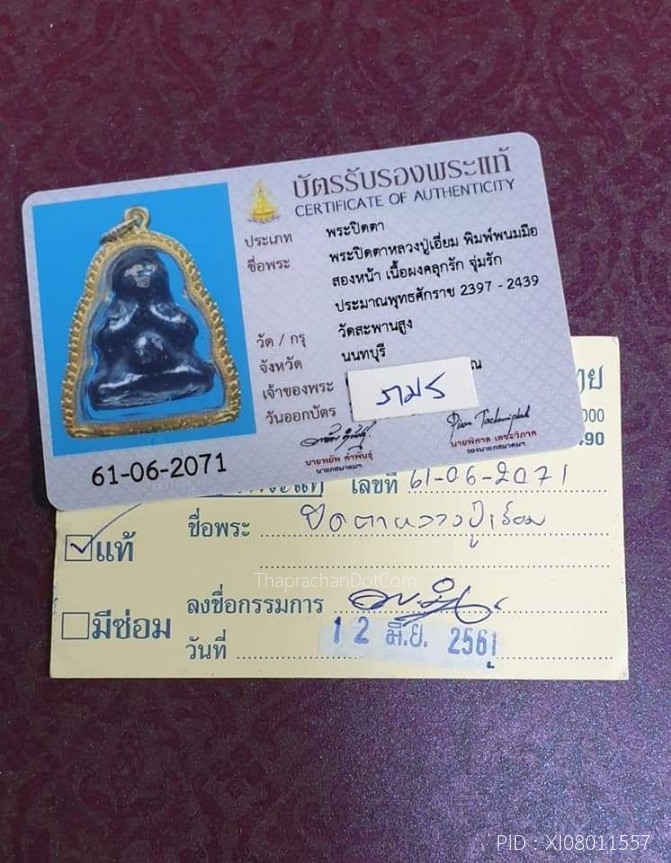 บัตรรับรองพระแท้
CERTIFICATE OF AUTHENTICITY
ประเภท พระปิดตา
ชื่อพระ พระปิดตาหลวงปู่เอี่ยม พิมพ์พนมมือ
สองหน้า เนื้อผงคลุกรัก จุ่มรัก
ประมาณพุทธศักราช 2397 - 2439
วัด / กรุ วัดสะพานสูง
จังหวัด นนทบุรี
เจ้าของพระ
วันออกบัตร
นายพยัพ คำพันธุ์
นายกสมาคมฯ
นายพิศาล เตชะวิภาค
รองนายกสมาคมฯ
61-06-2071
ไทย
000
490
เลขที่ 61-06-2071
แท้
ชื่อพระ ปิดตาหลวงปู่เอี่ยม
ThaprachanDotCom
มีซ่อม
ลงชื่อกรรมการ
วันที่ 12 มิ.ย. 2561
PID : XI08011557